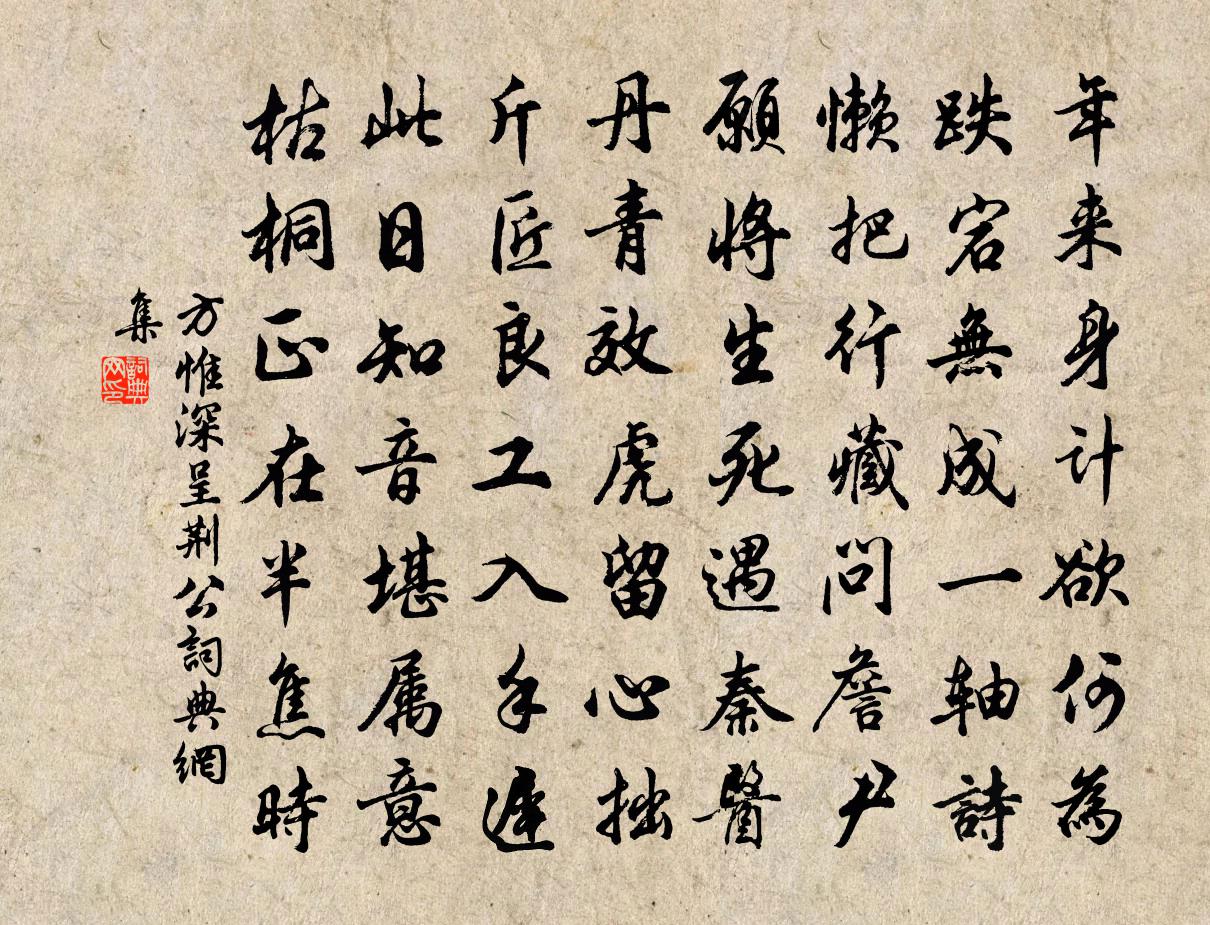 年来身计欲何為
跌宕無成一轴詩
懒把行藏問詹尹
願将生死遇秦醫
丹青效虎留心拙
斤匠良工入手遲
此日知音堪属意
枯桐正在半焦時
方惟深呈荆公詞典網
集
詞典网印